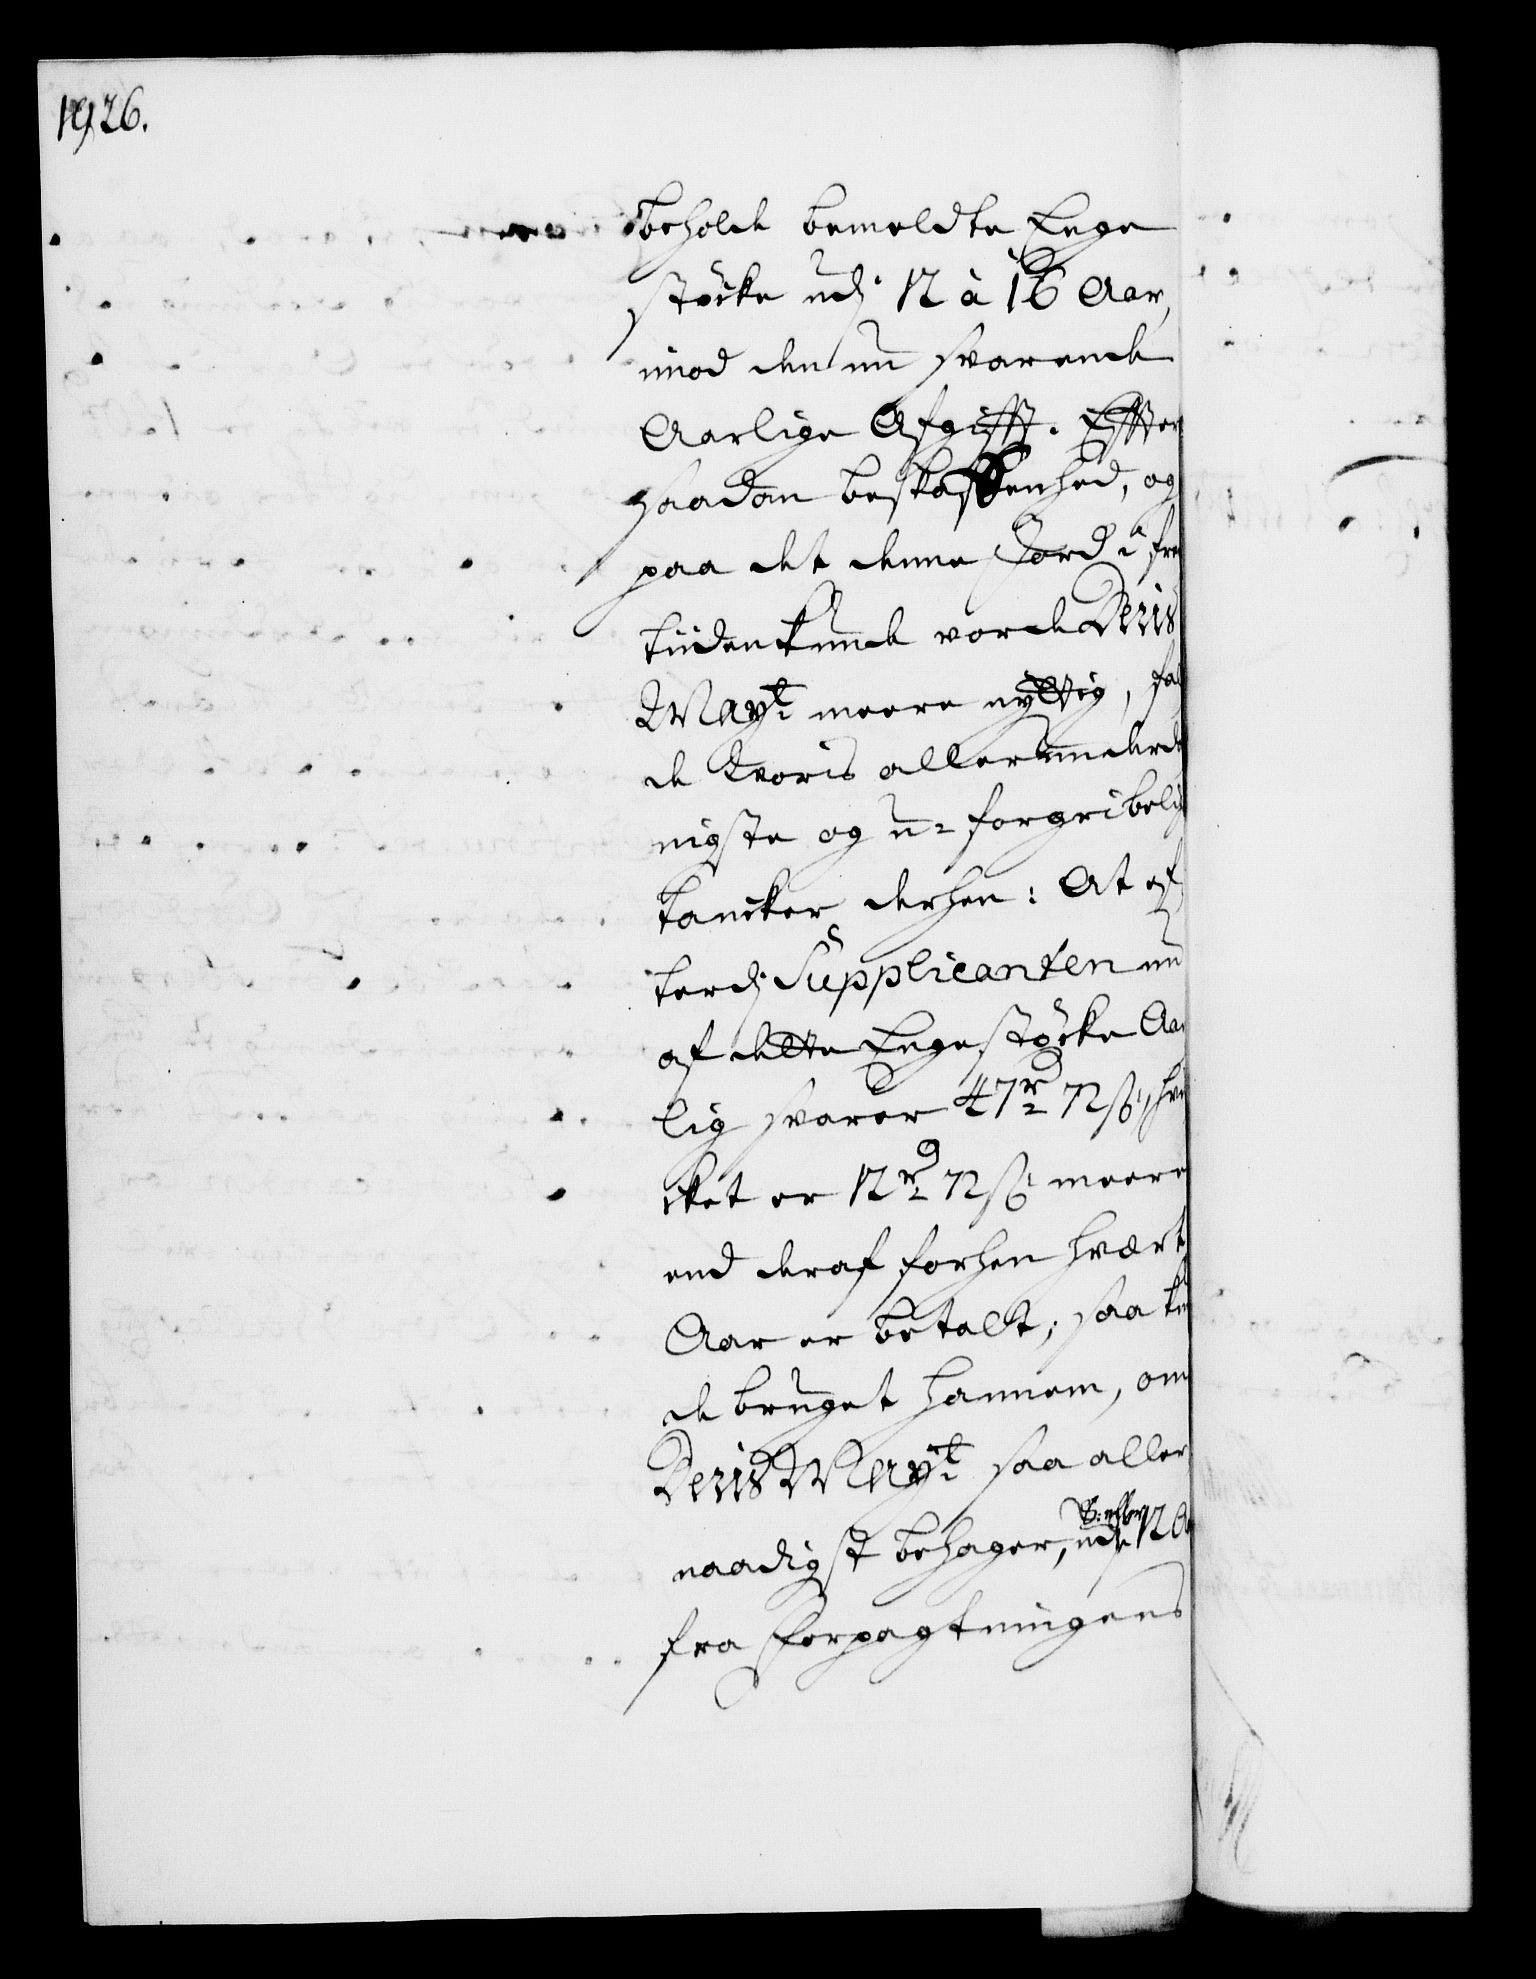 1926.
beholde bemeldte Enge
støcke udj 12 à 16 Aar,
imod den nu svarende
Aarlige Afgifft. Effter
saadan beskaffenhed, og
paa det denne Jord i fre
tiiden kunde vorde Deris
May.t meere nyttig, fal
de Voris allerunderda
nigste og u-forgribelig
tancker derhen: At ef
terdj Supplicanten nu
af dette Engestøcke Aar
lig svarer 47 rd 72 ß, hvi
cket er 12 rd 72 ß meere
end deraf forhen hvert
Aar er betalt; saa kun
de bruget hannem, om
Deris May.t saa aller
naadigst behager, udj 12 A
fra Forpagtningens